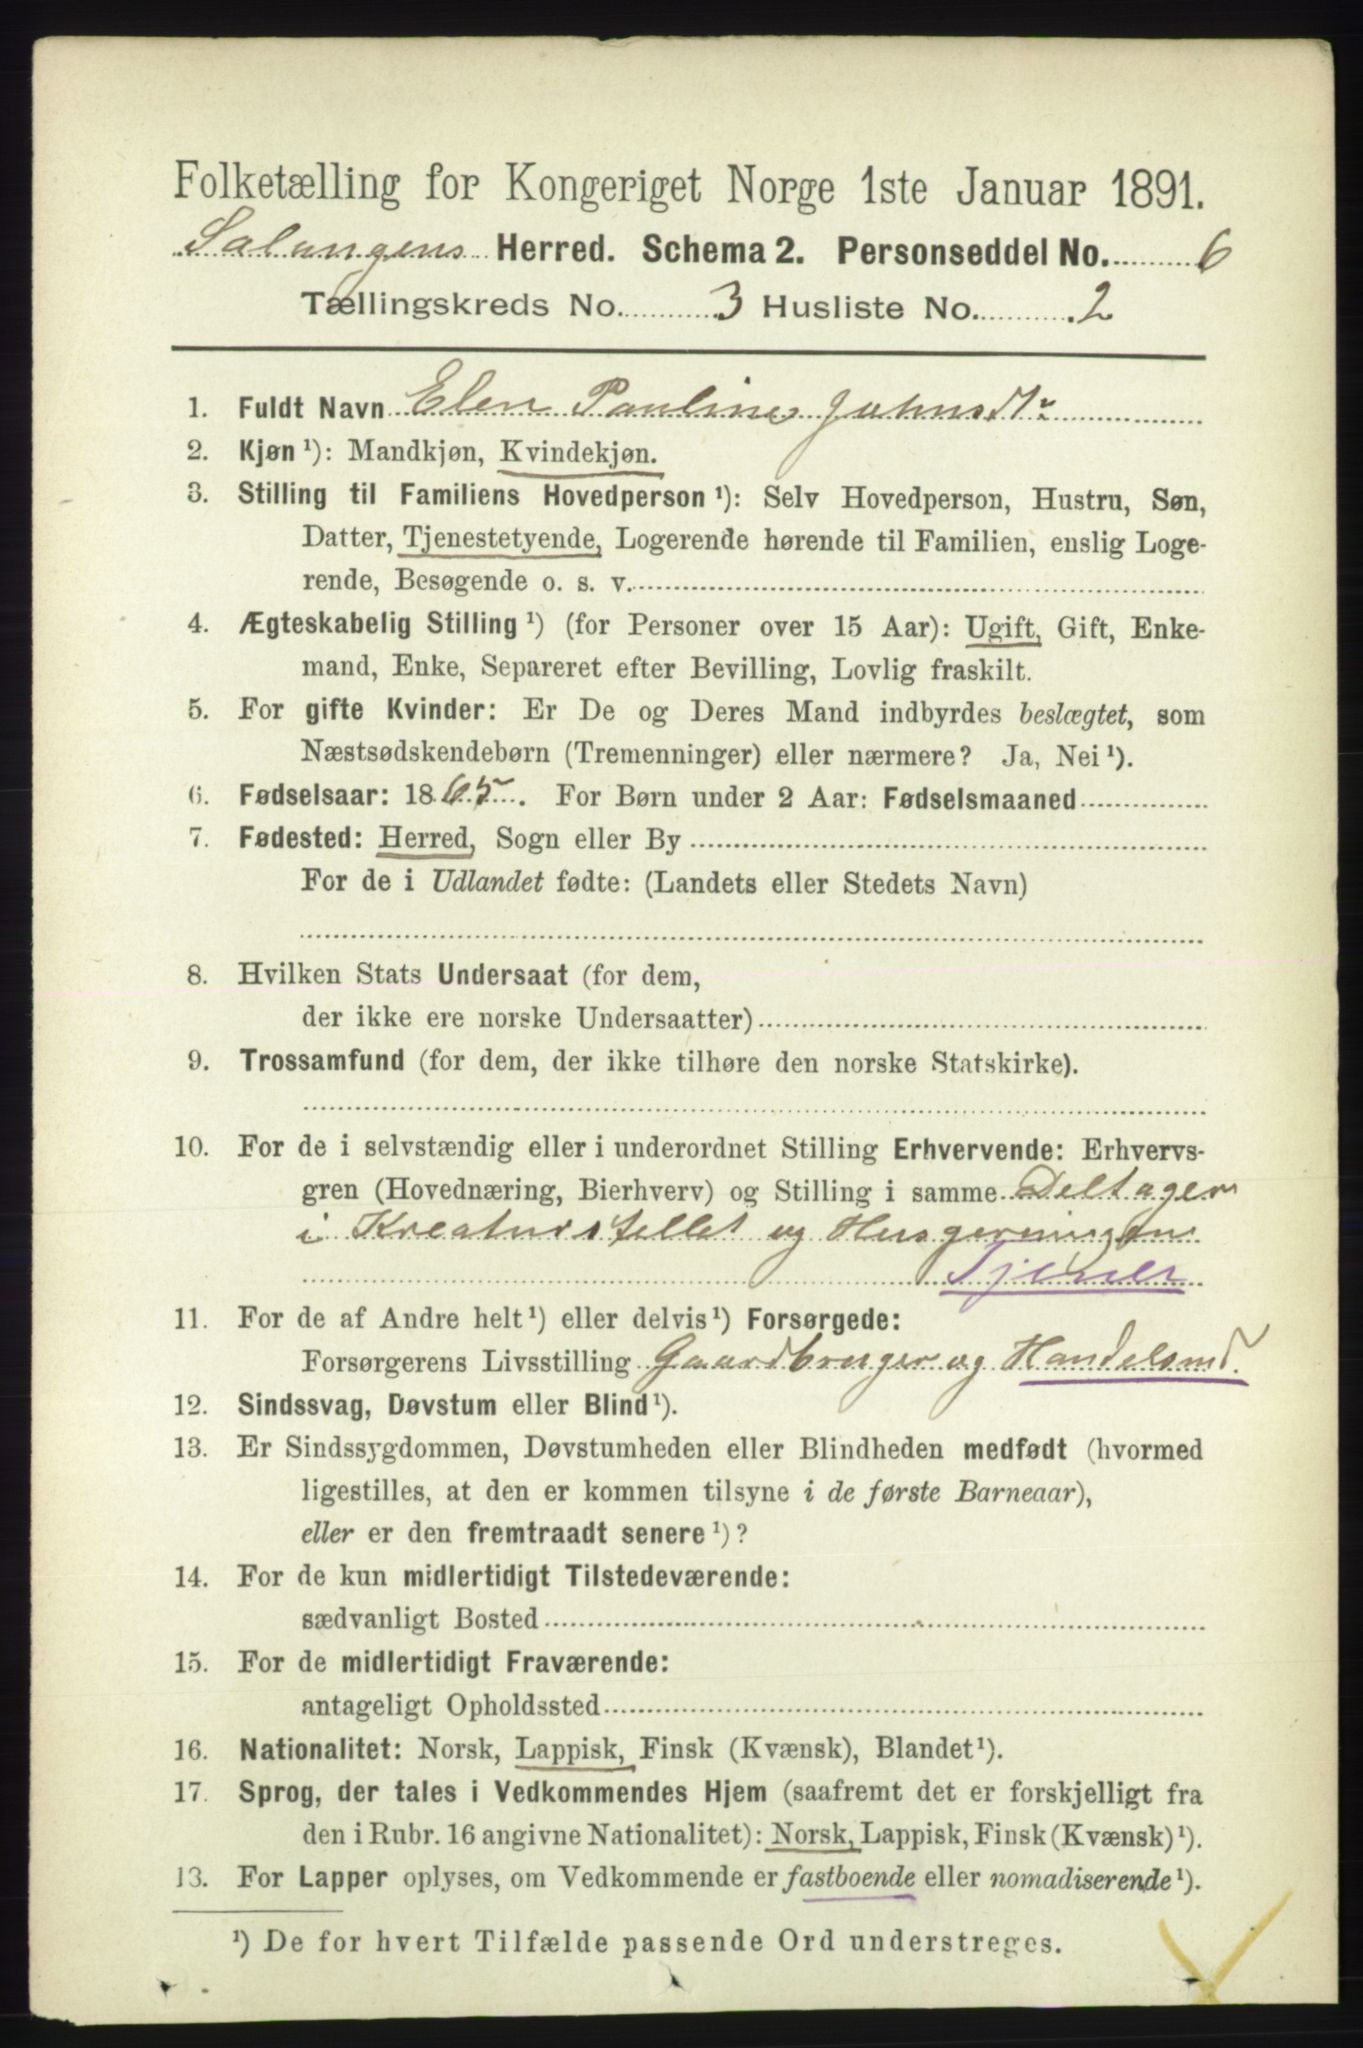 Folketælling for Kongeriget Norge 1ste Januar 1891.
Salangens Herred. Schema 2. Personseddel No. 6
Tællingskreds No. 3 Husliste No. 2
1. Fuldt Navn Elen Pauline Johnsdtr
2. Kjøn ¹): Mandkjøn, Kvindekjøn.
3. Stilling til Familiens Hovedperson ¹): Selv Hovedperson, Hustru, Søn,
Datter, Tjenestetyende, Logerende hørende til Familien, enslig Loge-
rende, Besøgende o. s. v.
4. Ægteskabelig Stilling ¹) (for Personer over 15 Aar): Ugift, Gift, Enke-
mand, Enke, Separeret efter Bevilling, Lovlig fraskilt.
5. For gifte Kvinder: Er De og Deres Mand indbyrdes beslægtet, som
Næstsødskendebørn (Tremenninger) eller nærmere? Ja, Nei ¹).
6. Fødselsaar: 1865. For Børn under 2 Aar: Fødselsmaaned
7. Fødested: Herred, Sogn eller By
For de i Udlandet fødte: (Landets eller Stedets Navn)
8. Hvilken Stats Undersaat (for dem,
der ikke ere norske Undersaatter)
9. Trossamfund (for dem, der ikke tilhøre den norske Statskirke).
10. For de i selvstændig eller i underordnet Stilling Erhvervende: Erhvervs-
gren (Hovednæring, Bierhverv) og Stilling i samme Deltager
i Kreaturstellet og Husgerningen
Tjener
11. For de af Andre helt ¹) eller delvis ¹) Forsørgede:
Forsørgerens Livsstilling Gaardbruger og Handelsmd.
12. Sindssvag, Døvstum eller Blind ¹).
13. Er Sindssygdommen, Døvstumheden eller Blindheden medfødt (hvormed
ligestilles, at den er kommen tilsyne i de første Barneaar),
eller er den fremtraadt senere ¹)?
14. For de kun midlertidigt Tilstedeværende:
sædvanligt Bosted
15. For de midlertidigt Fraværende:
antageligt Opholdssted
16. Nationalitet: Norsk, Lappisk, Finsk (Kvænsk), Blandet ¹).
17. Sprog, der tales i Vedkommendes Hjem (saafremt det er forskjelligt fra
den i Rubr. 16 angivne Nationalitet): Norsk, Lappisk, Finsk (Kvænsk) ¹).
13. For Lapper oplyses, om Vedkommende er fastboende eller nomadiserende ¹).
¹) De for hvert Tilfælde passende Ord understreges.